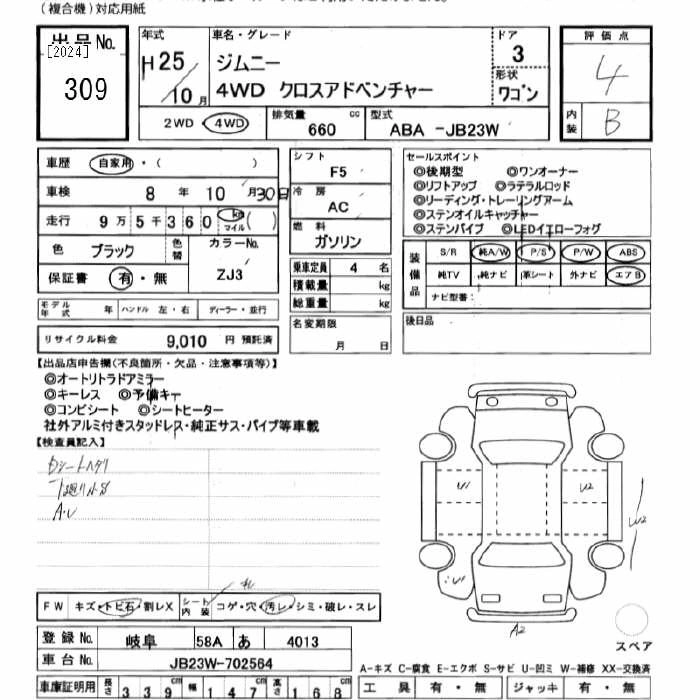 (複合機)対応用紙
出品No.
[2024]
309
年式
H25
10月
車名・グレード
ジムニー
4WD クロスアドベンチャー
ドア
3
形状
ワゴン
2WD・4WD
排気量
660 cc
型式
ABA -JB23W
評価点
4
内装
B
車歴 自家用・( )
車検 8年 10月 30日
走行 9万5千360 km マイル ( )
色 ブラック
色替
カラーNo.
ZJ3
保証書 有・無
モデル年式 年 ハンドル 左・右 ディーラー・並行
リサイクル料金 9,010 円 預託済
シフト
F5
冷房
AC
燃料
ガソリン
乗車定員 4 名
積載量 kg
総重量 kg
名変期限
月 日
セールスポイント
◎後期型 ◎ワンオーナー
◎リフトアップ ◎ラテラルロッド
◎リーディング・トレーリングアーム
◎ステンオイルキャッチャー
◎ステンパイプ ◎LEDイエローフォグ
装備品
S/R 純A/W P/S P/W ABS
純TV 純ナビ 革シート 外ナビ エアB
ナビ型番:
後日品
【出品店申告欄(不良箇所・欠品・注意事項等)】
◎オートリトラドアミラー
◎キーレス ◎予備キー
◎コンビシート ◎シートヒーター
社外アルミ付きスタッドレス・純正サス・パイプ等車載
【検査員記入】
A・U
FW キズ・トビ石・割レX
シート内装 コゲ・穴・汚レ・シミ・破レ・スレ
登録No. 岐阜 58A あ 4013
車台No. JB23W-702564
車庫証明用 長さ 339 cm 幅 147 cm 高さ 168 cm
U1
U2
W2
U1
A2
スペア
A-キズ C-腐食 E-エクボ S-サビ U-凹ミ W-補修 XX-交換済
工具 有・無 ジャッキ 有・無